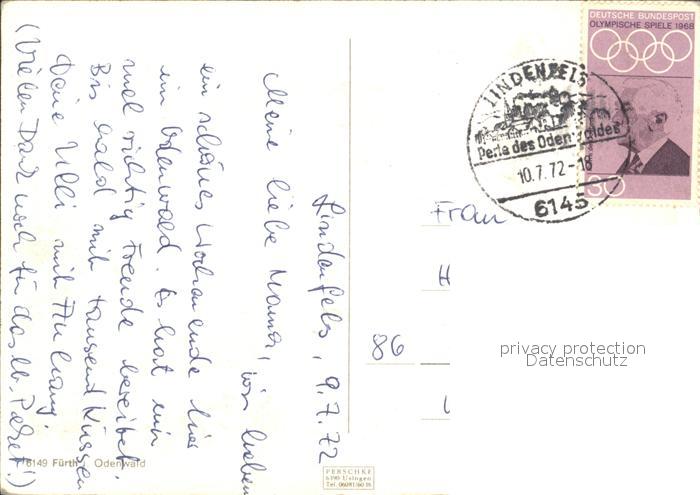 Lindenfels, 9.7.72
Meine liebe Mama, wir
ein schönes Wochenende hier
im Odenwald. Es hat mir
mal richtig Freude bereitet.
Bis bald mit tausend Küssen
Deine Ulli mit Anhang.
(Vielen Dank noch für das lb. Paket!)
DEUTSCHE BUNDESPOST
OLYMPISCHE SPIELE 1968
30
LINDENFELS
Perle des Odenwaldes
10.7.72-18
6145
Frau
H
86
privacy protection
Datenschutz
6149 Fürth Odenwald
PERSCHKE
6390 Usingen